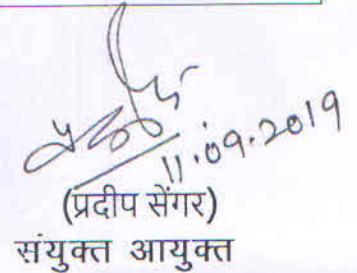 11.09.2019
(प्रदीप सेंगर)
संयुक्त आयुक्त